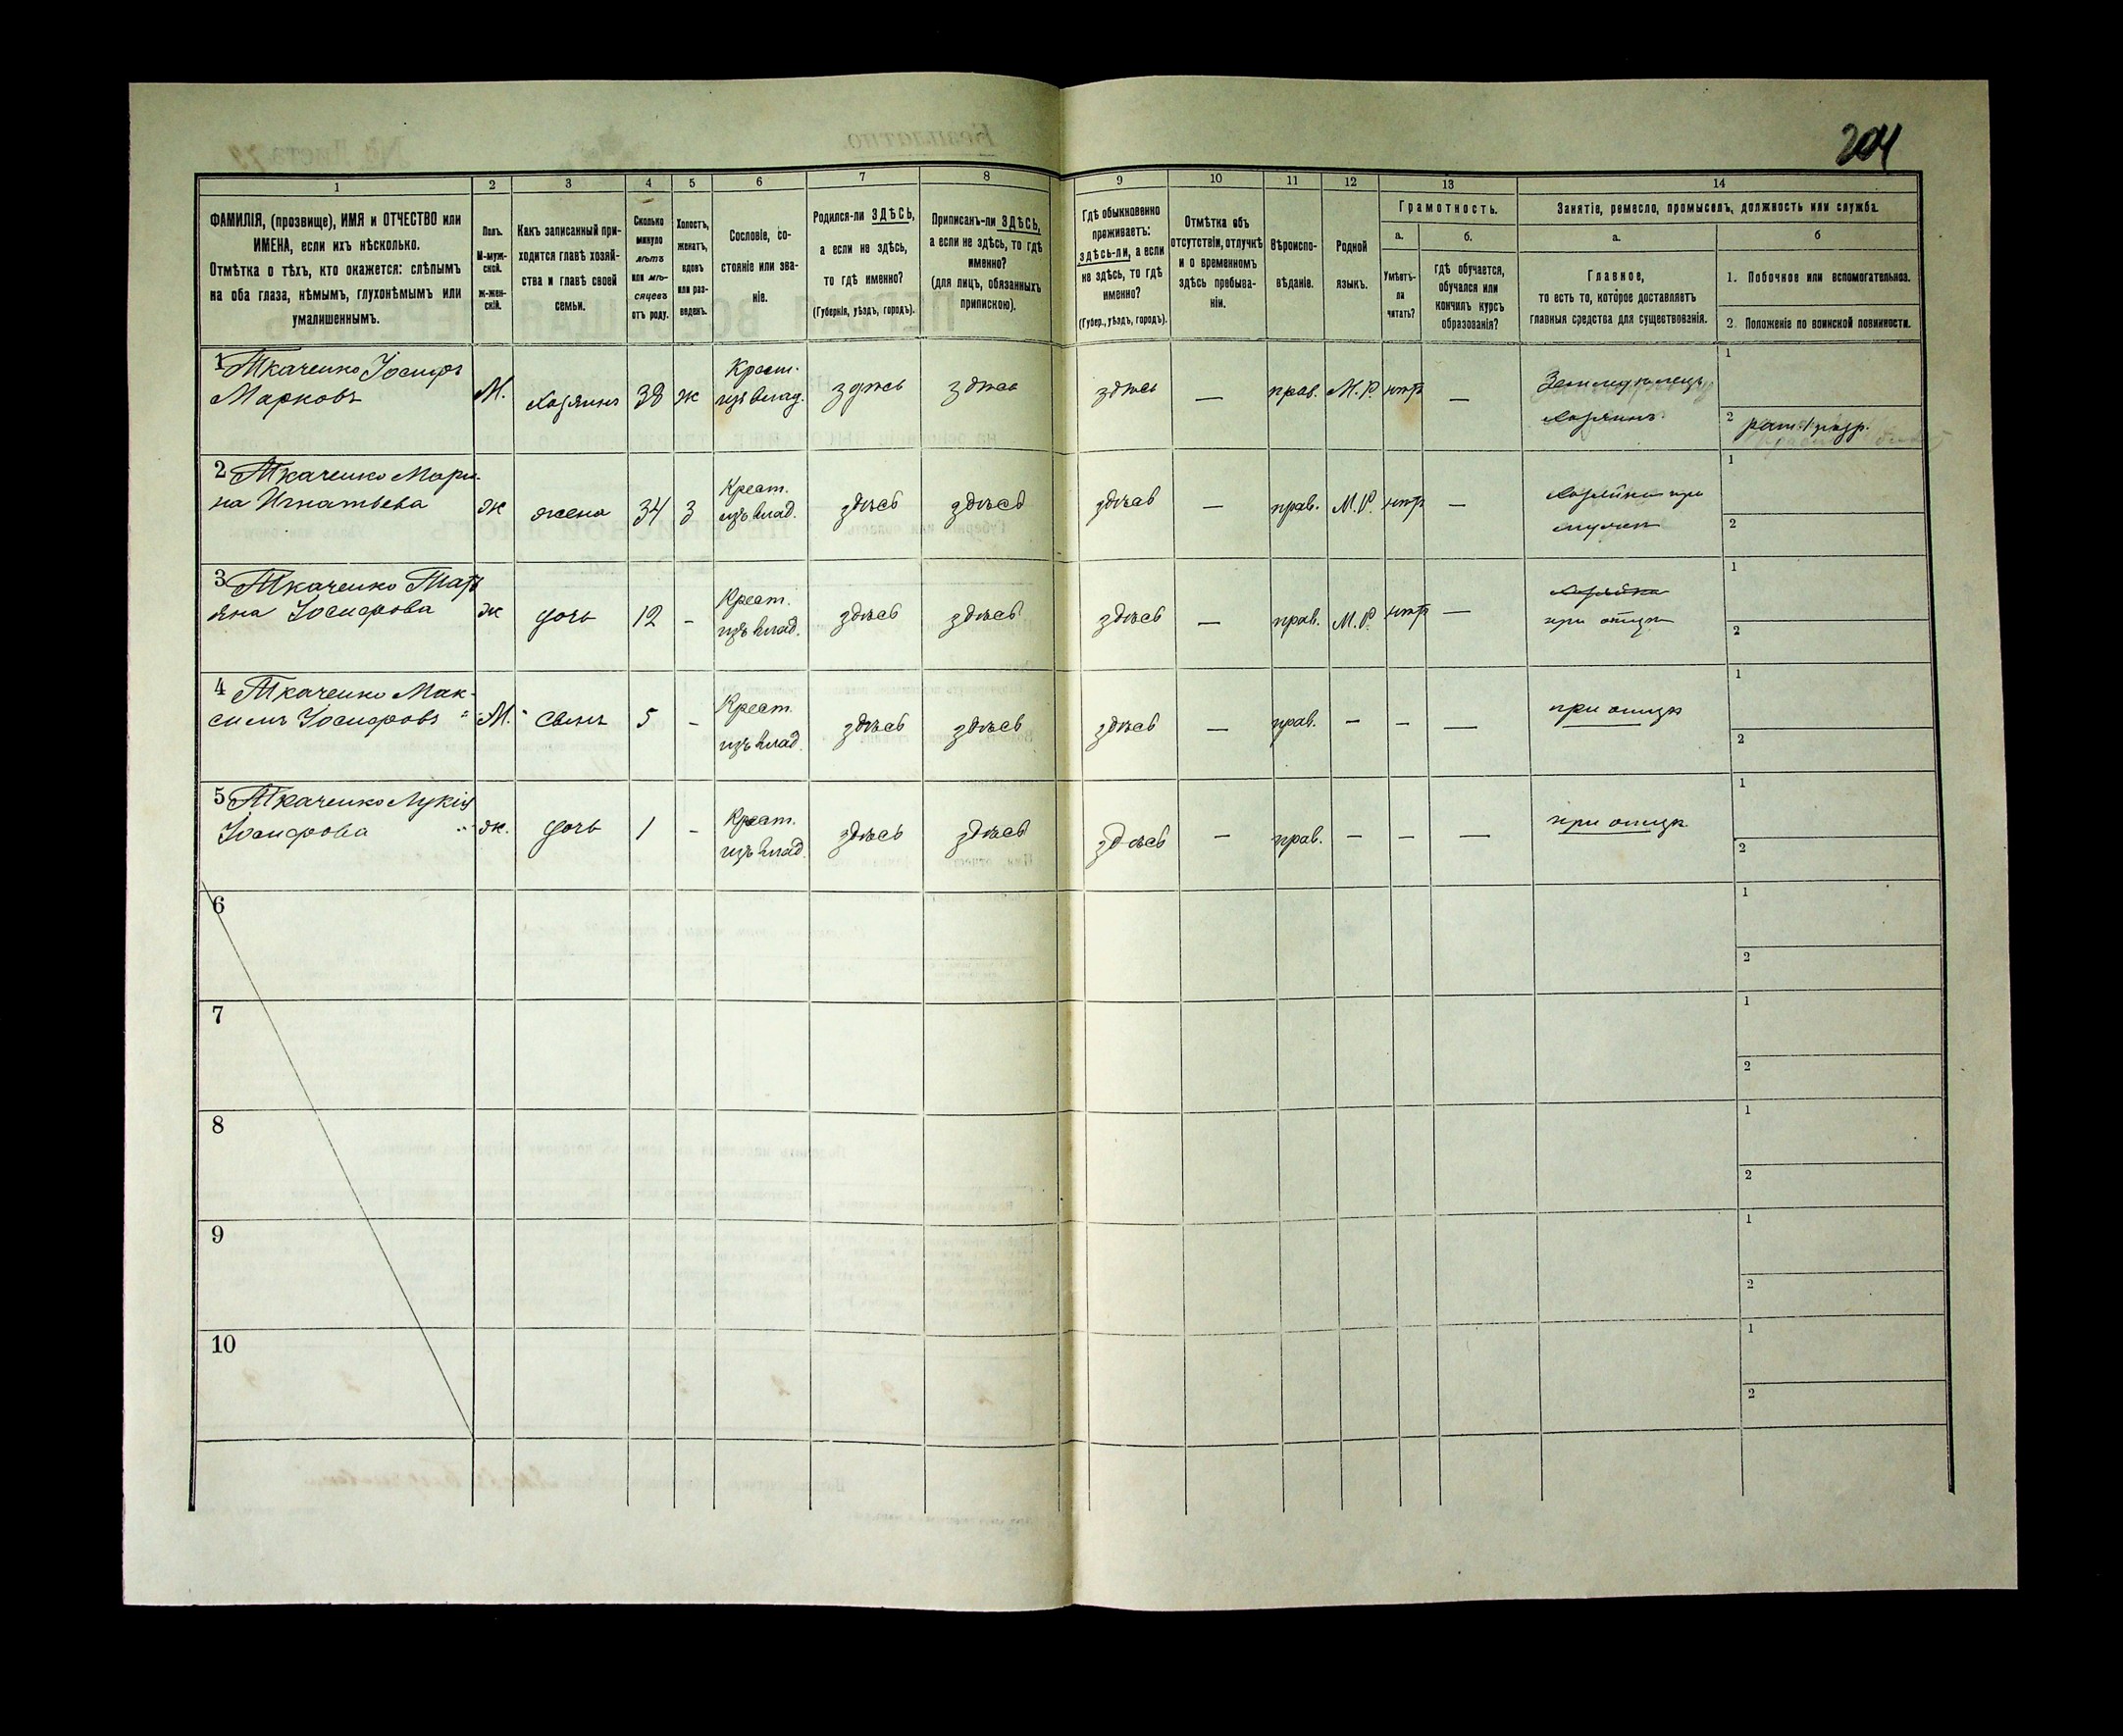 204
1 2 3 4 5 6 7 8 9 10 11 12 13 14
ФАМИЛІЯ, (прозвище), ИМЯ и ОТЧЕСТВО или
ИМЕНА, если ихъ нѣсколько.
Отмѣтка о тѣхъ, кто окажется: слѣпымъ
на оба глаза, нѣмымъ, глухонѣмымъ или
умалишеннымъ.
Полъ.
М-муж-
ской.
ж-жен-
скій.
Какъ записанный при-
ходится главѣ хозяй-
ства и главѣ своей
семьи.
Сколько
минуло
лѣтъ
или мѣ-
сяцевъ
отъ роду.
Холостъ,
женатъ,
вдовъ
или раз-
веденъ.
Сословіе, со-
стояніе или зва-
ніе.
Родился-ли ЗДѢСЬ,
а если не здѣсь,
то гдѣ именно?
(Губернія, уѣздъ, городъ).
Приписанъ-ли ЗДѢСЬ,
а если не здѣсь, то гдѣ
именно?
(для лицъ, обязанныхъ
припискою).
Гдѣ обыкновенно
проживаетъ:
здѣсь-ли, а если
не здѣсь, то гдѣ
именно?
(Губер., уѣздъ, городъ).
Отмѣтка объ
отсутствіи, отлучкѣ
и о временномъ
здѣсь пребыва-
ніи.
Вѣроиспо-
вѣданіе.
Родной
языкъ.
Грамотность.
а.
Умѣетъ-
ли
читать?
б.
Гдѣ обучается,
обучался или
кончилъ курсъ
образованія?
Занятіе, ремесло, промыселъ, должность или служба.
а.
Главное,
то есть то, которое доставляетъ
главныя средства для существованія.
б
1. Побочное или вспомогательное.
2. Положеніе по воинской повинности.
1 Ткаченко Іосифъ
Марковъ
М.
хозяинъ
38
ж
Крест.
изъ влад.
здѣсь
здѣсь
здѣсь
—
прав.
М.Р.
нѣтъ
—
Земледѣлецъ
хозяинъ
1
2 рат. 1 разр.
2 Ткаченко Мари-
на Игнатьева
ж
жена
34
З
Крест.
изъ влад.
здѣсь
здѣсь
здѣсь
—
прав.
М.Р.
нѣтъ
—
хозяйка при
мужѣ
1
2
3 Ткаченко Тать
яна Іосифова
ж
дочь
12
-
Крест.
изъ влад.
здѣсь
здѣсь
здѣсь
—
прав.
М.Р.
нѣтъ
—
хозяйка
при отцѣ
1
2
4 Ткаченко Мак-
симъ Іосифовъ
М.
сынъ
5
-
Крест.
изъ влад.
здѣсь
здѣсь
здѣсь
—
прав.
–
–
—
при отцѣ
1
2
5 Ткаченко Лукія
Іосифова
ж.
дочь
1
-
Крест.
изъ влад.
здѣсь
здѣсь
здѣсь
—
прав.
–
–
—
при отцѣ
1
2
6
1
2
7
1
2
8
1
2
9
1
2
10
1
2